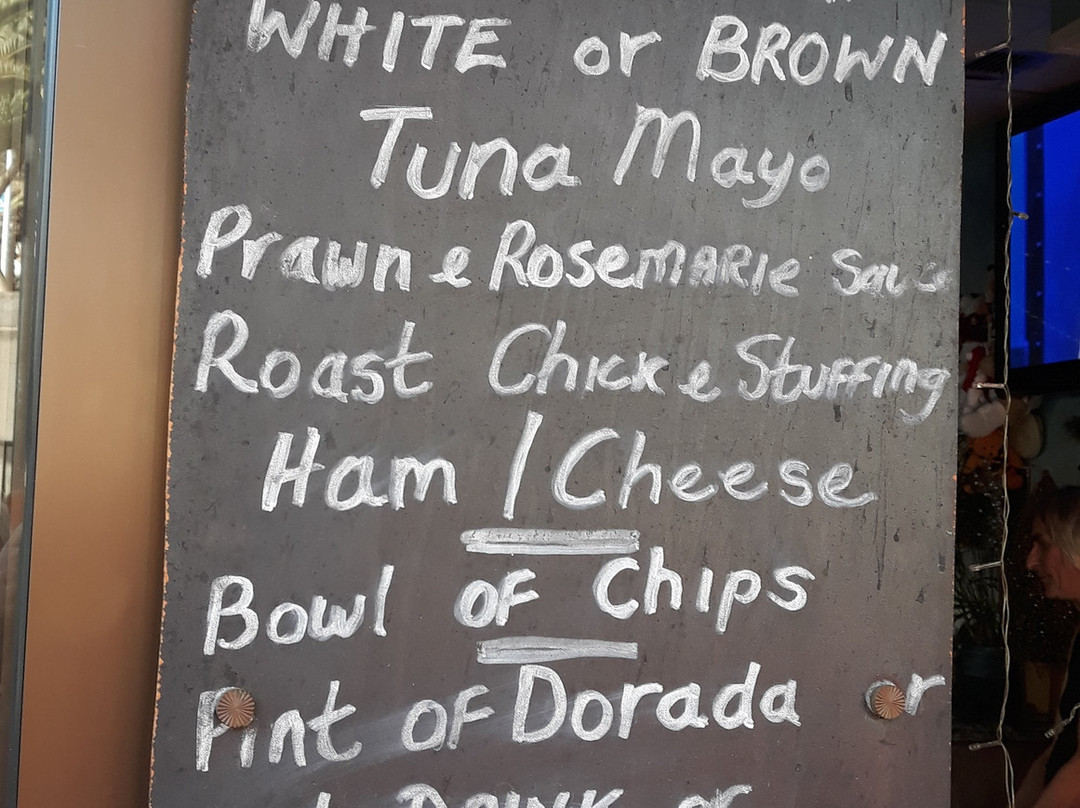 WHITE or BROWN
Tuna Mayo
Prawn & Rosemarie Sauce
Roast Chick & Stuffing
Ham / Cheese
Bowl of Chips
Pint of Dorada or
DRINK or